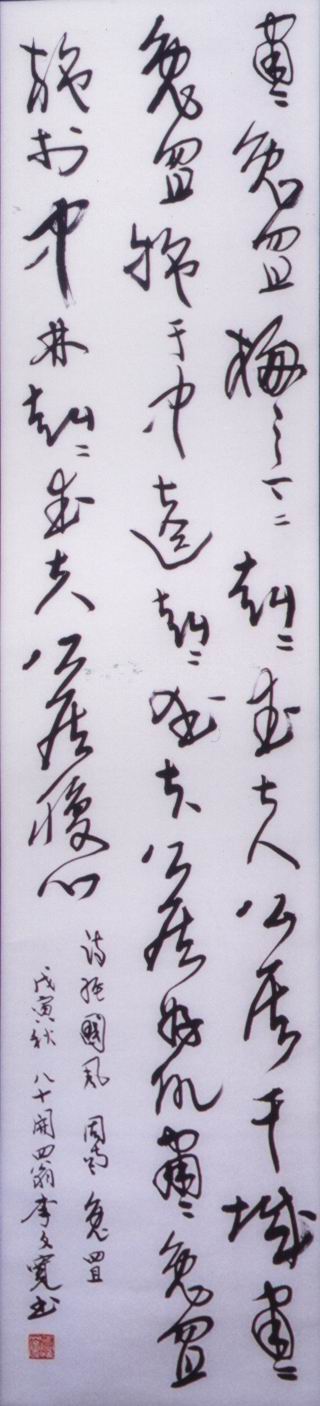 肅〻兔罝椓之丁〻赳〻武夫公侯干城肅〻
兔罝施于中逵赳〻武夫公侯好仇肅〻兔罝
施於中林赳〻武夫公侯腹心
詩經國風 周南 兔罝
戊寅秋 八十開四翁李文寬书